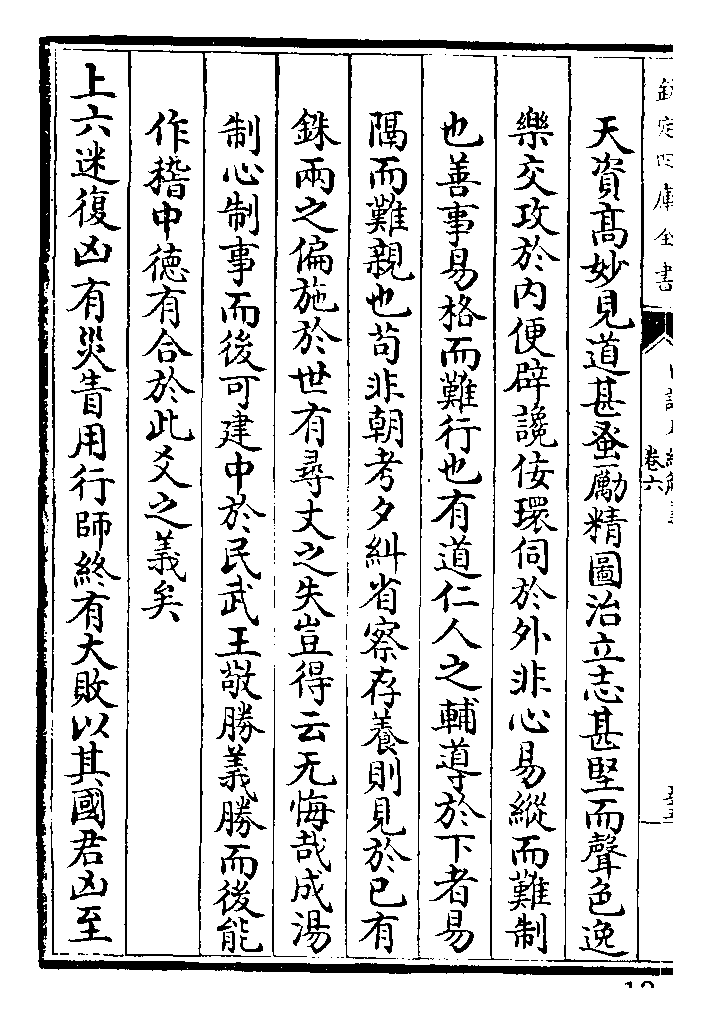 欽定四庫全書
卷六
天資髙妙見道甚蚤勵精圖治立志甚堅而聲色逸
樂交攻於内便辟讒佞環伺於外非心易縱而難制
也善事易格而難行也有道仁人之輔導於下者易
隔而難親也苟非朝考夕糾省察存養則見於已有
銖兩之偏施於世有尋丈之失豈得云无悔哉成湯
制心制事而後可建中於民武王敬勝義勝而後能
作稽中德有合於此爻之義矣
上六迷復凶有災眚用行師終有大敗以其國君凶至